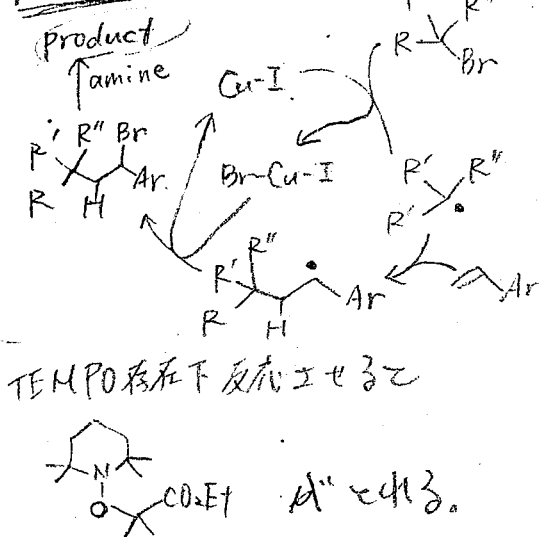 product
amine
Cu-I
R''
R
Br
R' R'' Br
R H Ar
Br-Cu-I
R' R''
R'
R' R''
R H Ar
Ar
TEMPO存在下反応させると
N
O CO2Et がとれる。